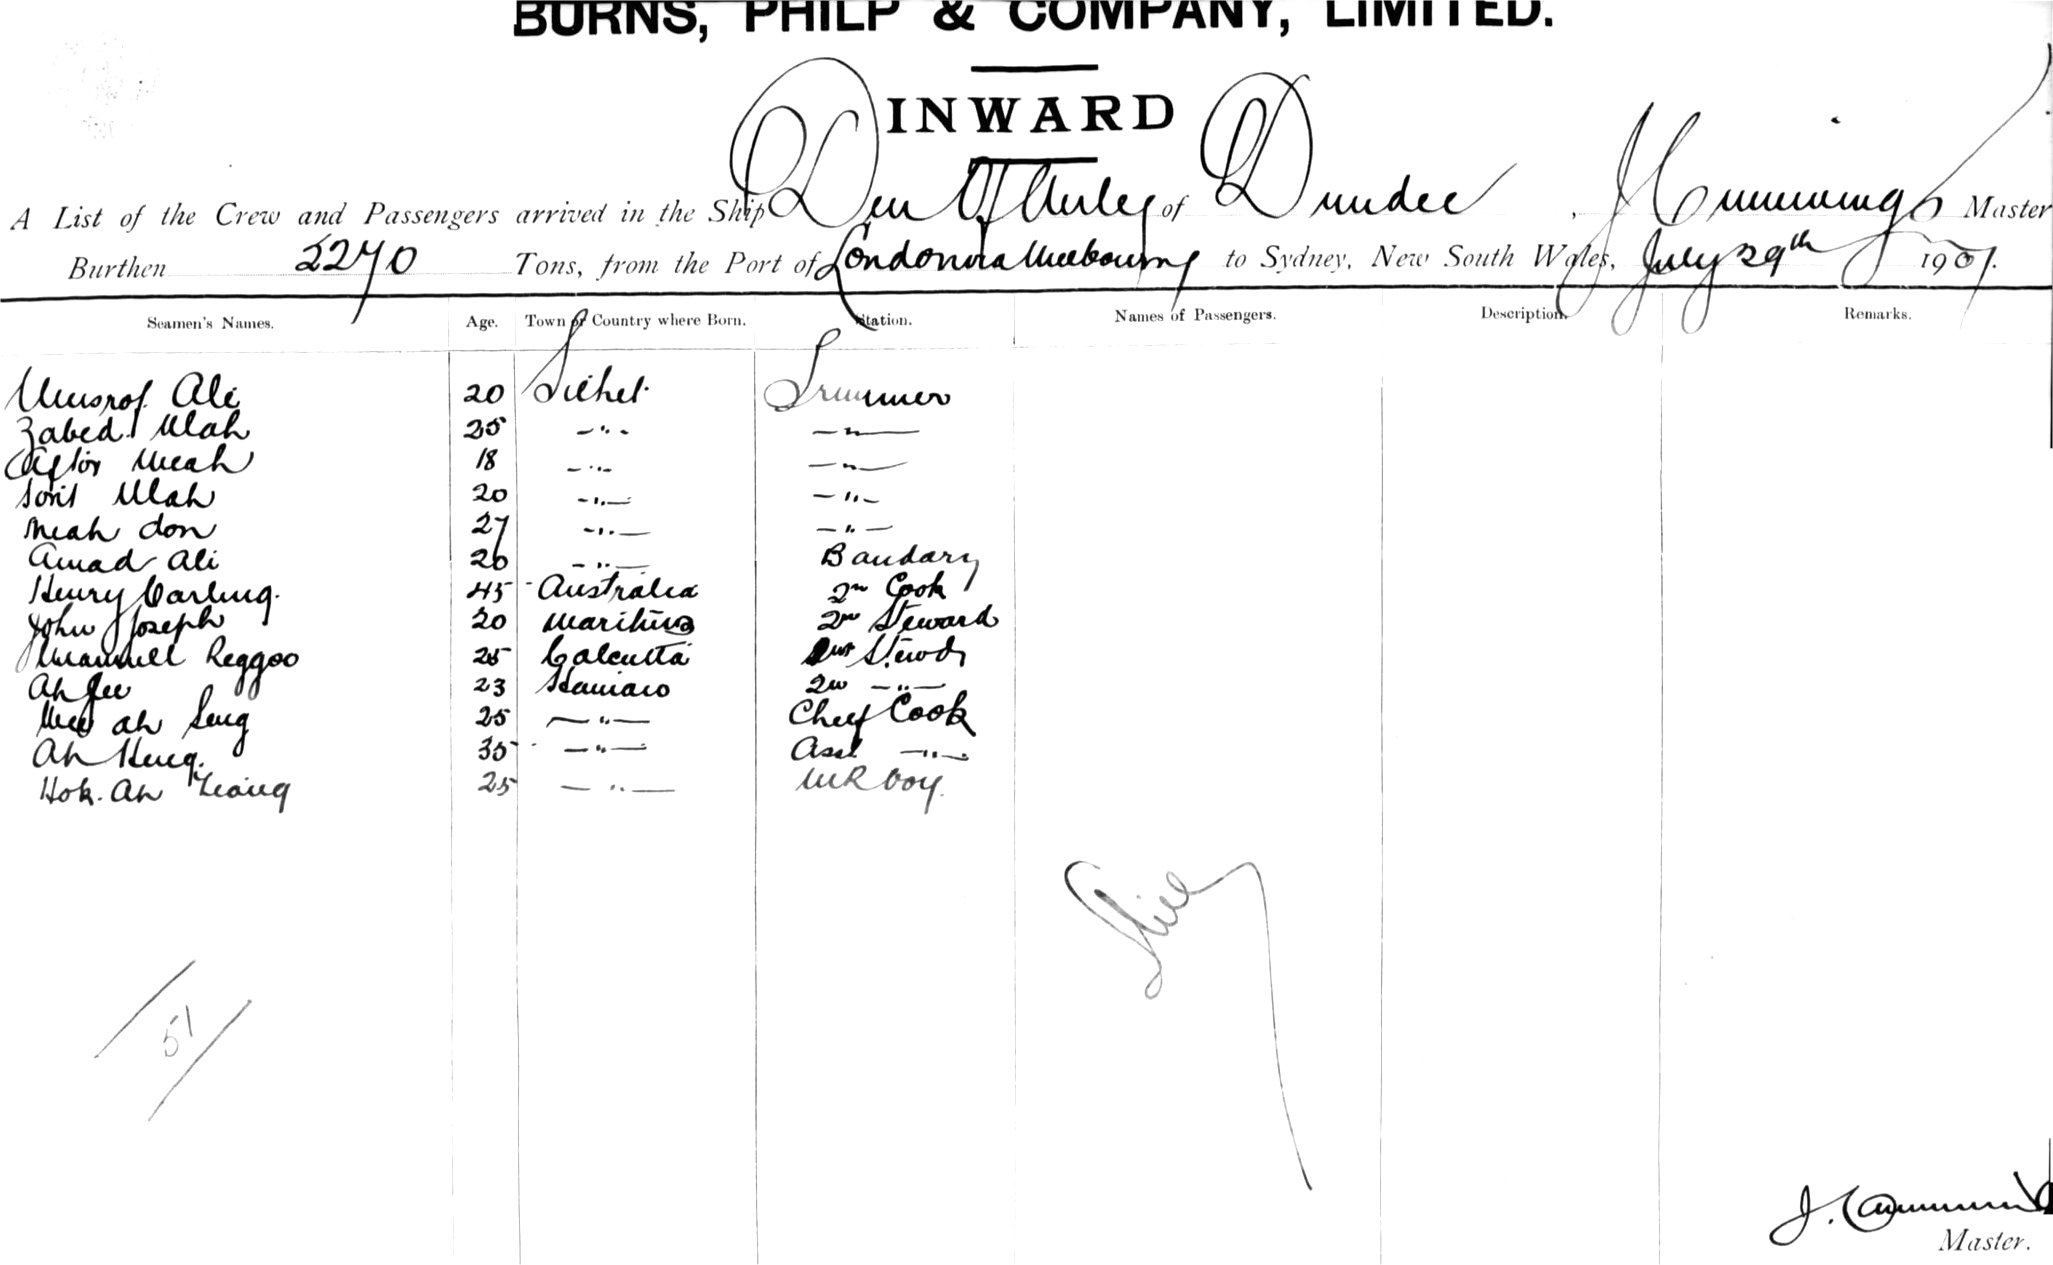 BURNS, PHILP & COMPANY, LIMITED.
INWARD
A List of the Crew and Passengers arrived in the Ship Den Of Airley of Dundee, J Cummings Master
Burthen 2270 Tons, from the Port of London via Melbourne to Sydney, New South Wales, July 29th 1901.
Seamen's Names. Age. Town or Country where Born. Station. Names of Passengers. Description. Remarks.
Ali 20 Silhet Trimmer
Zabed Ulah 25 -"- -"-
Meah 18 -"- -"-
Ulah 20 -"- -"-
Meah don 27 -"- -"-
Amad Ali 26 -"- Bandary
Henry Carling. 45 Australia 2nd Cook
John Joseph 20 2nd Steward
Manuell Reggoo 25 Calcutta Stewd
Ah Jee 23 2nd -"-
Ah 25 -"- Cheef Cook
Ah 35 -"- Asst -"-
Hok. Ah 25 -"- M R boy.
51
J. Cummings
Master.